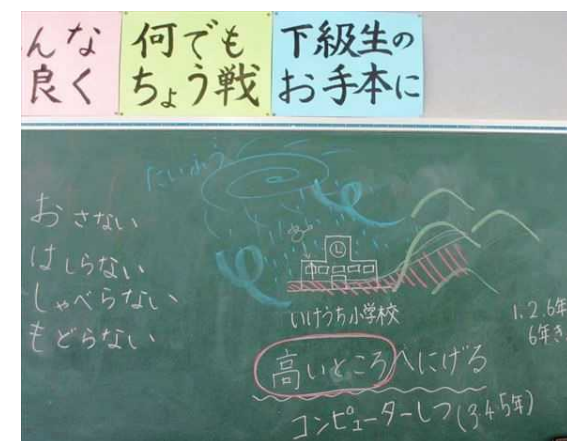 んな
良く
何でも
ちょう戦
下級生の
お手本に
たいふう
おさない
はしらない
しゃべらない
もどらない
いけうち小学校
1.2.6年
6年き
高いところへにげる
コンピューターしつ(3.4.5年)